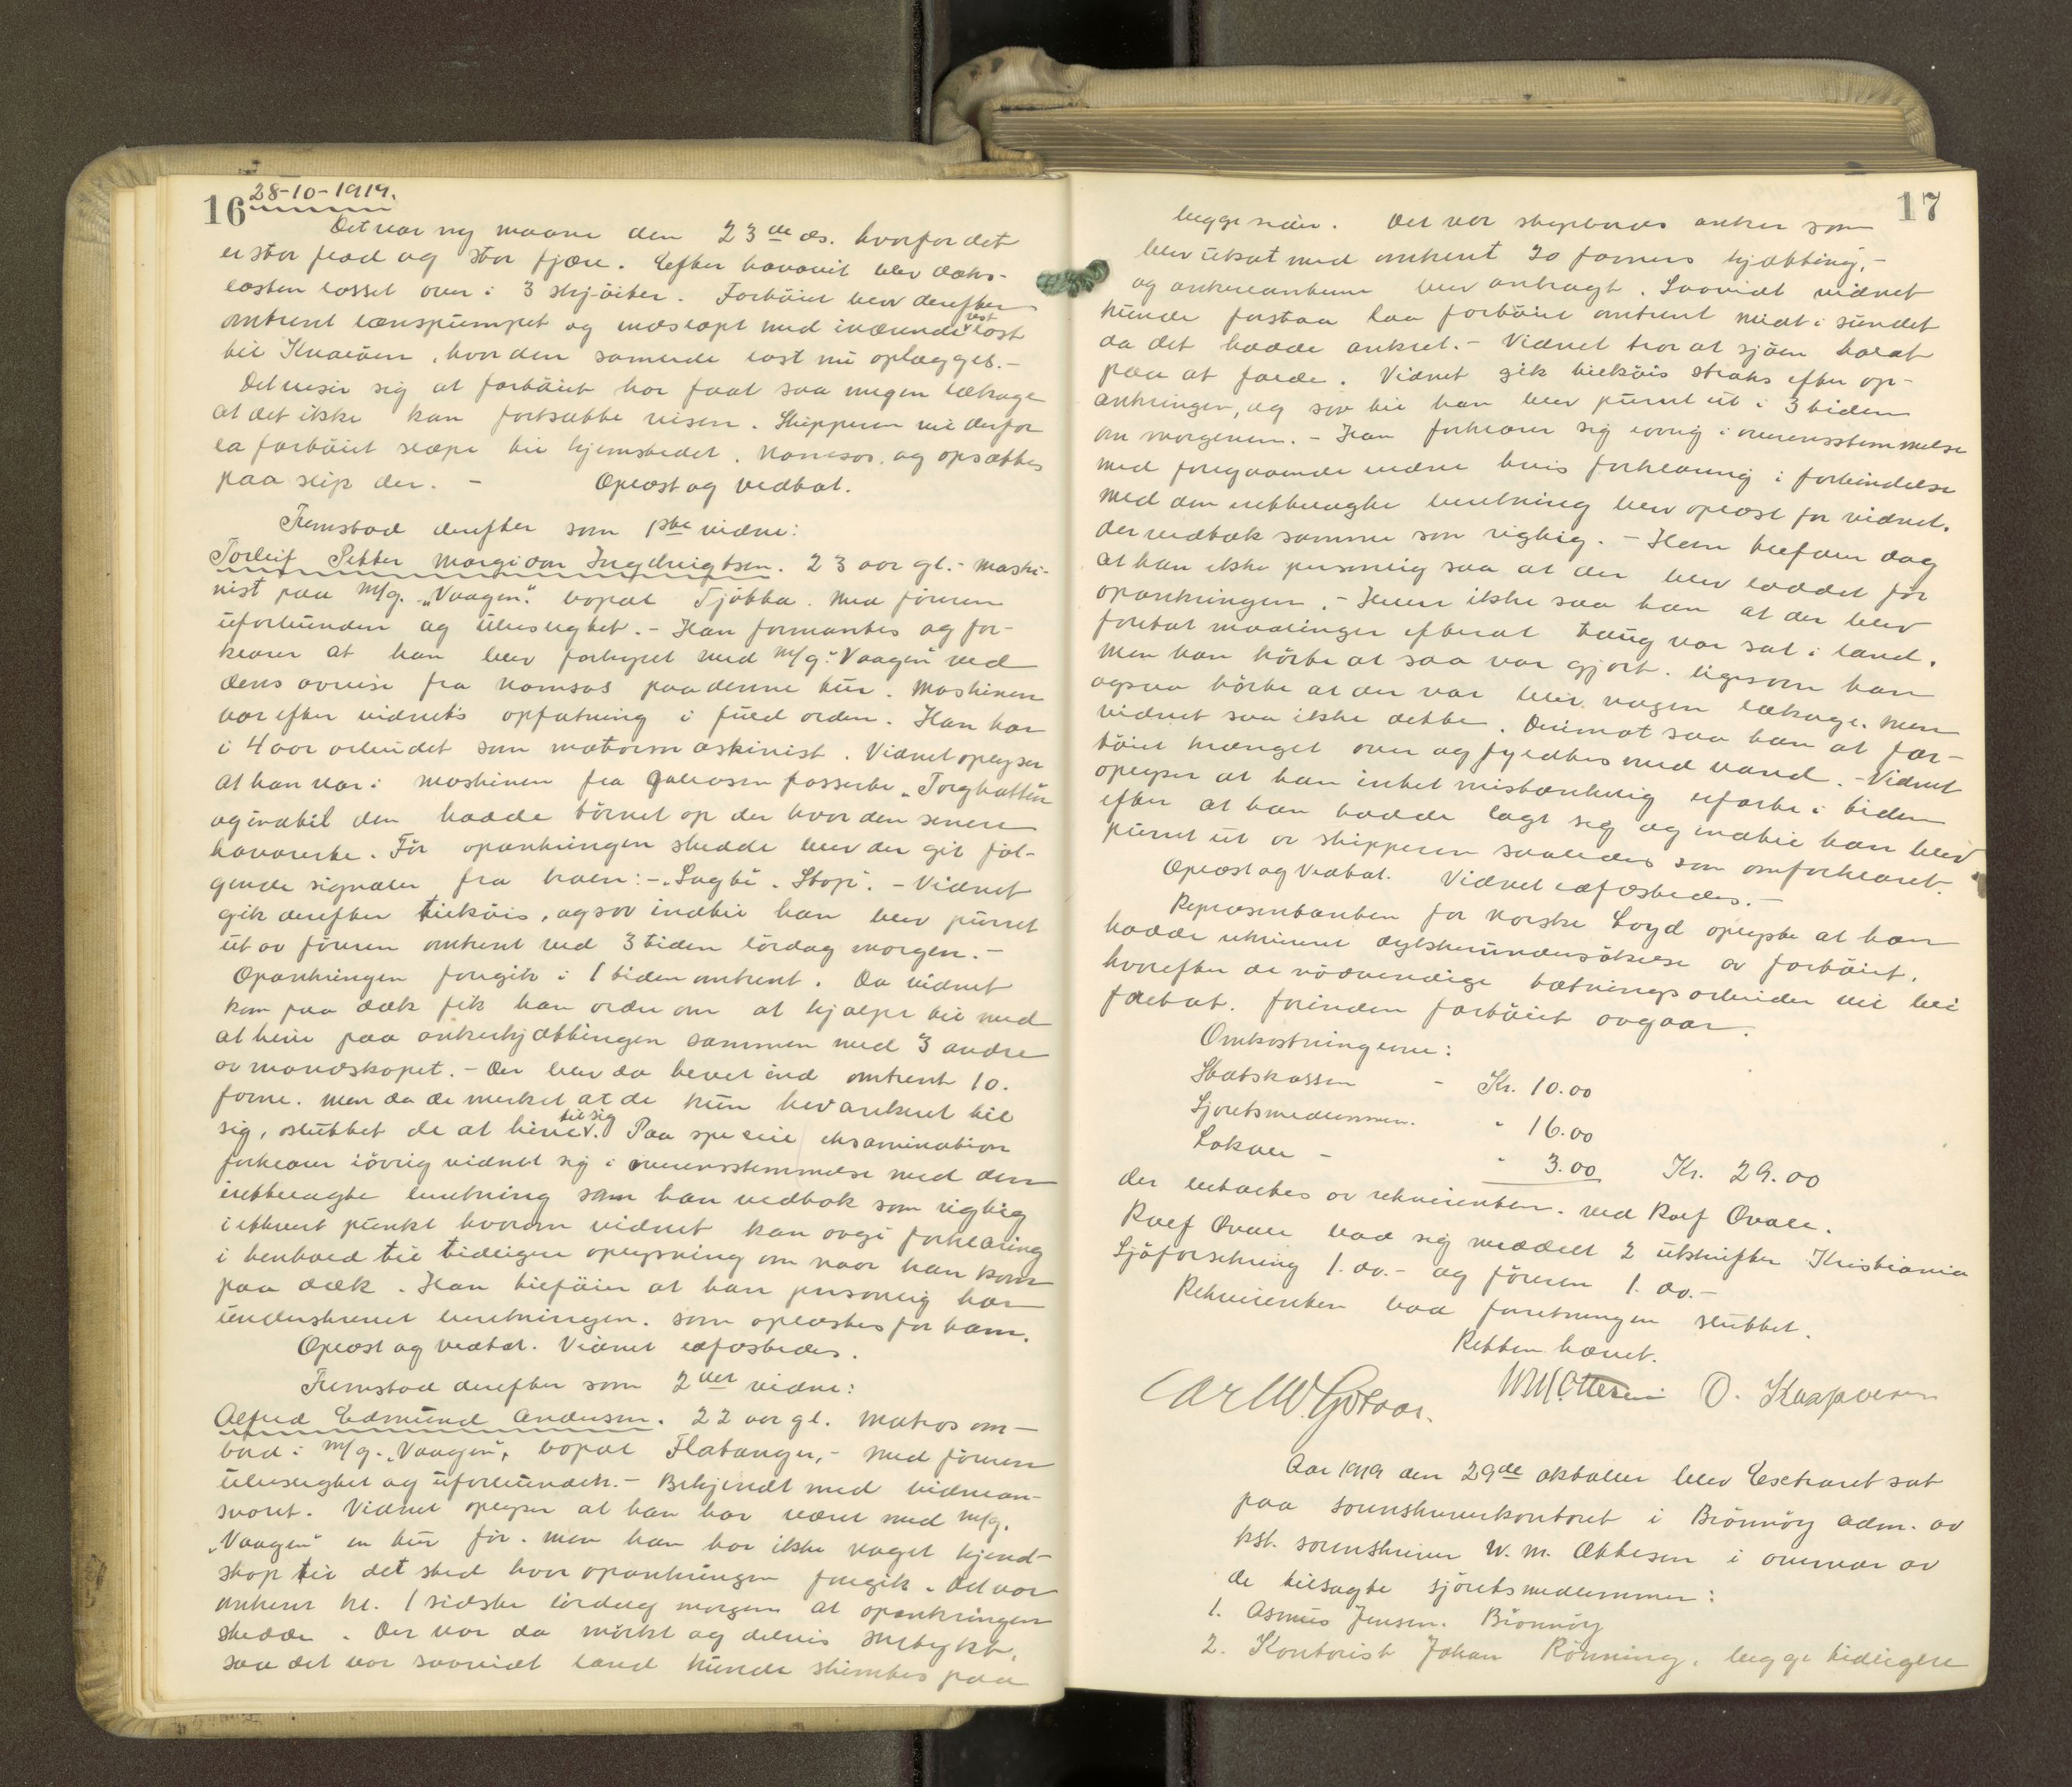 16 28-10-1919.
Det var ny maane den 23de ds. hvorfor det
er stor flod og stor fjære. Efter havariet blev dæks-
lasten losset over i 3 skjöiter. Fartöiet blev derefter
omtrent lænspumpet og indslæpt med iværende rest last
til Kvalöen, hvor den samlede last nu oplægges. -
Det viser sig at fartöiet har faat saa megen lækage
at det ikke kan fortsætte reisen. Skipperen vil derfor
la fartöiet slæpe til hjemstedet. Namsos. og opsættes
paa slip der. - Oplæst og vedtat.
Fremstod derefter som 1ste vidne:
Torleif Petter Margido Ingebrigtsen. 23 aar gl. - maski-
nist paa M/g. "Vaagen". bopæl Tjötta. Med föreren
uforbunden og ubeslegtet. - Han formantes og for-
klarer at han blev forhyret med M/g. "Vaagen" ved
dens avreise fra Namsos paa denne tur. Maskinen
var efter vidnets opfatning i fuld orden. Han har
i 4 aar arbeidet som motormaskinist. Vidnet oplyser
at han var i maskinen fra galeasen passerte "Torghatten"
og indtil den hadde törnet op der hvor den senere
havarerte. För opankringen skedde blev der git föl-
gende signaler fra broen: - "Sagte". "Stop". - Vidnet
gik derefter tilköis, og sov indtil han blev purret
ut av föreren omtrent ved 3 tiden lördag morgen. -
Opankringen foregik i 1 tiden omtrent. Da vidnet
kom paa dæk fik han ordre om at hjælpe til med
at hive paa ankerkjættingen sammen med 3 andre
av mandskapet. - Der blev da hevet ind omtrent 10.
favne. men da de merket at de kun hev ankeret til
sig, sluttet de at hive til sig. Paa speciel eksamination
forklarer iövrig vidnet sig i overensstemmelse med den
irettelagte beretning som han vedtok som rigtig
i ethvert punkt hvorom vidnet kan avgi forklaring
i henhold til tidligere oplysning om naar han kom
paa dæk. Han tilföier at han personlig har
underskrevet beretningen. som oplæstes for ham.
Oplæst og vedtat. Vidnet edfæstedes.
Fremstod derefter som 2det vidne:
Alfred Edmund Andersen. 22 aar gl. Matros om-
bord i M/g. "Vaagen", bopæl Flatanger, - med föreren
ubeslegtet og uforbunden. - Bekjendt med vidnean-
svaret. Vidnet oplyser at han har været med M/g.
"Vaagen" en tur för. men han har ikke noget kjend-
skap til det sted hvor opankringen foregik. Det var
omtrent kl. 1 sidste lördag morgen at opankringen
skedde. Der var da mörkt og delvis snetykt,
saa det var saavidt land kunde skimtes paa
17
begge sider. Det var styrbords anker som
blev utsat med omtrent 30 favners kjætting, -
og ankerlanterne blev anbragt. Saavidt vidnet
kunde forstaa laa fartöiet omtrent midt i sundet
da det hadde ankret. - Vidnet tror at sjöen holdt
paa at falde. Vidnet gik tilköis straks efter op-
ankringen, og sov til han blev purret ut i 3 tiden
om morgenen. - Han forklarer sig iövrig i overensstemmelse
med foregaaende vidne hvis forklaring i forbindelse
med den irettelagte beretning blev oplæst for vidnet.
der vedtok samme som rigtig. - Han tilföier dog
at han ikke personlig saa at der blev loddet för
opankringen. - Heller ikke saa han at der blev
foretat maalinger efterat taug var sat i land.
men han hörte at saa var gjort. ligesom han
ogsaa hörte at der var blit nogen lækage. Men
vidnet saa ikke dette. Derimot saa han at far-
töiet krænget over og fyldtes med vand. - Vidnet
oplyser at han intet mistænkelig erfarte i tiden
efter at han hadde lagt sig og indtil han blev
purret ut av skipperen saaledes som omforklaret.
Oplæst og vedtat. Vidnet edfæstedes. -
Repræsentanten for Norske Loyd oplyste at han
hadde rekvireret dykkerundersökelse av fartöiet,
hvorefter de nödvendige tætningsarbeider vil bli
foretat. forinden fartöiet avgaar.
Omkostningerne:
Statskassen - Kr. 10.00
Sjöretsmedlemmer. " 16.00
Lokale - " 3.00 Kr. 29.00
der betaltes av rekvirenten. ved Rolf Qvale.
Rolf Qvale bad sig meddelt 2 utskrifter Kristiania
Sjöforsikring 1. do. - og föreren 1. do. -
Rekvirenten bad forretningen sluttet.
Retten hævet.
W.M. Ottesen O. Kaspersen
Aar 1919 den 29de oktober blev Extraret sat
paa sorenskriverkontoret i Brönnöy adm. av
kst. sorenskriver W. M. Ottesen i overvær av
de tilsagte sjöretsmedlemmer:
1. Asmus Jensen. Brönnöy
2. Kontorist Johan Rönning. begge tidligere